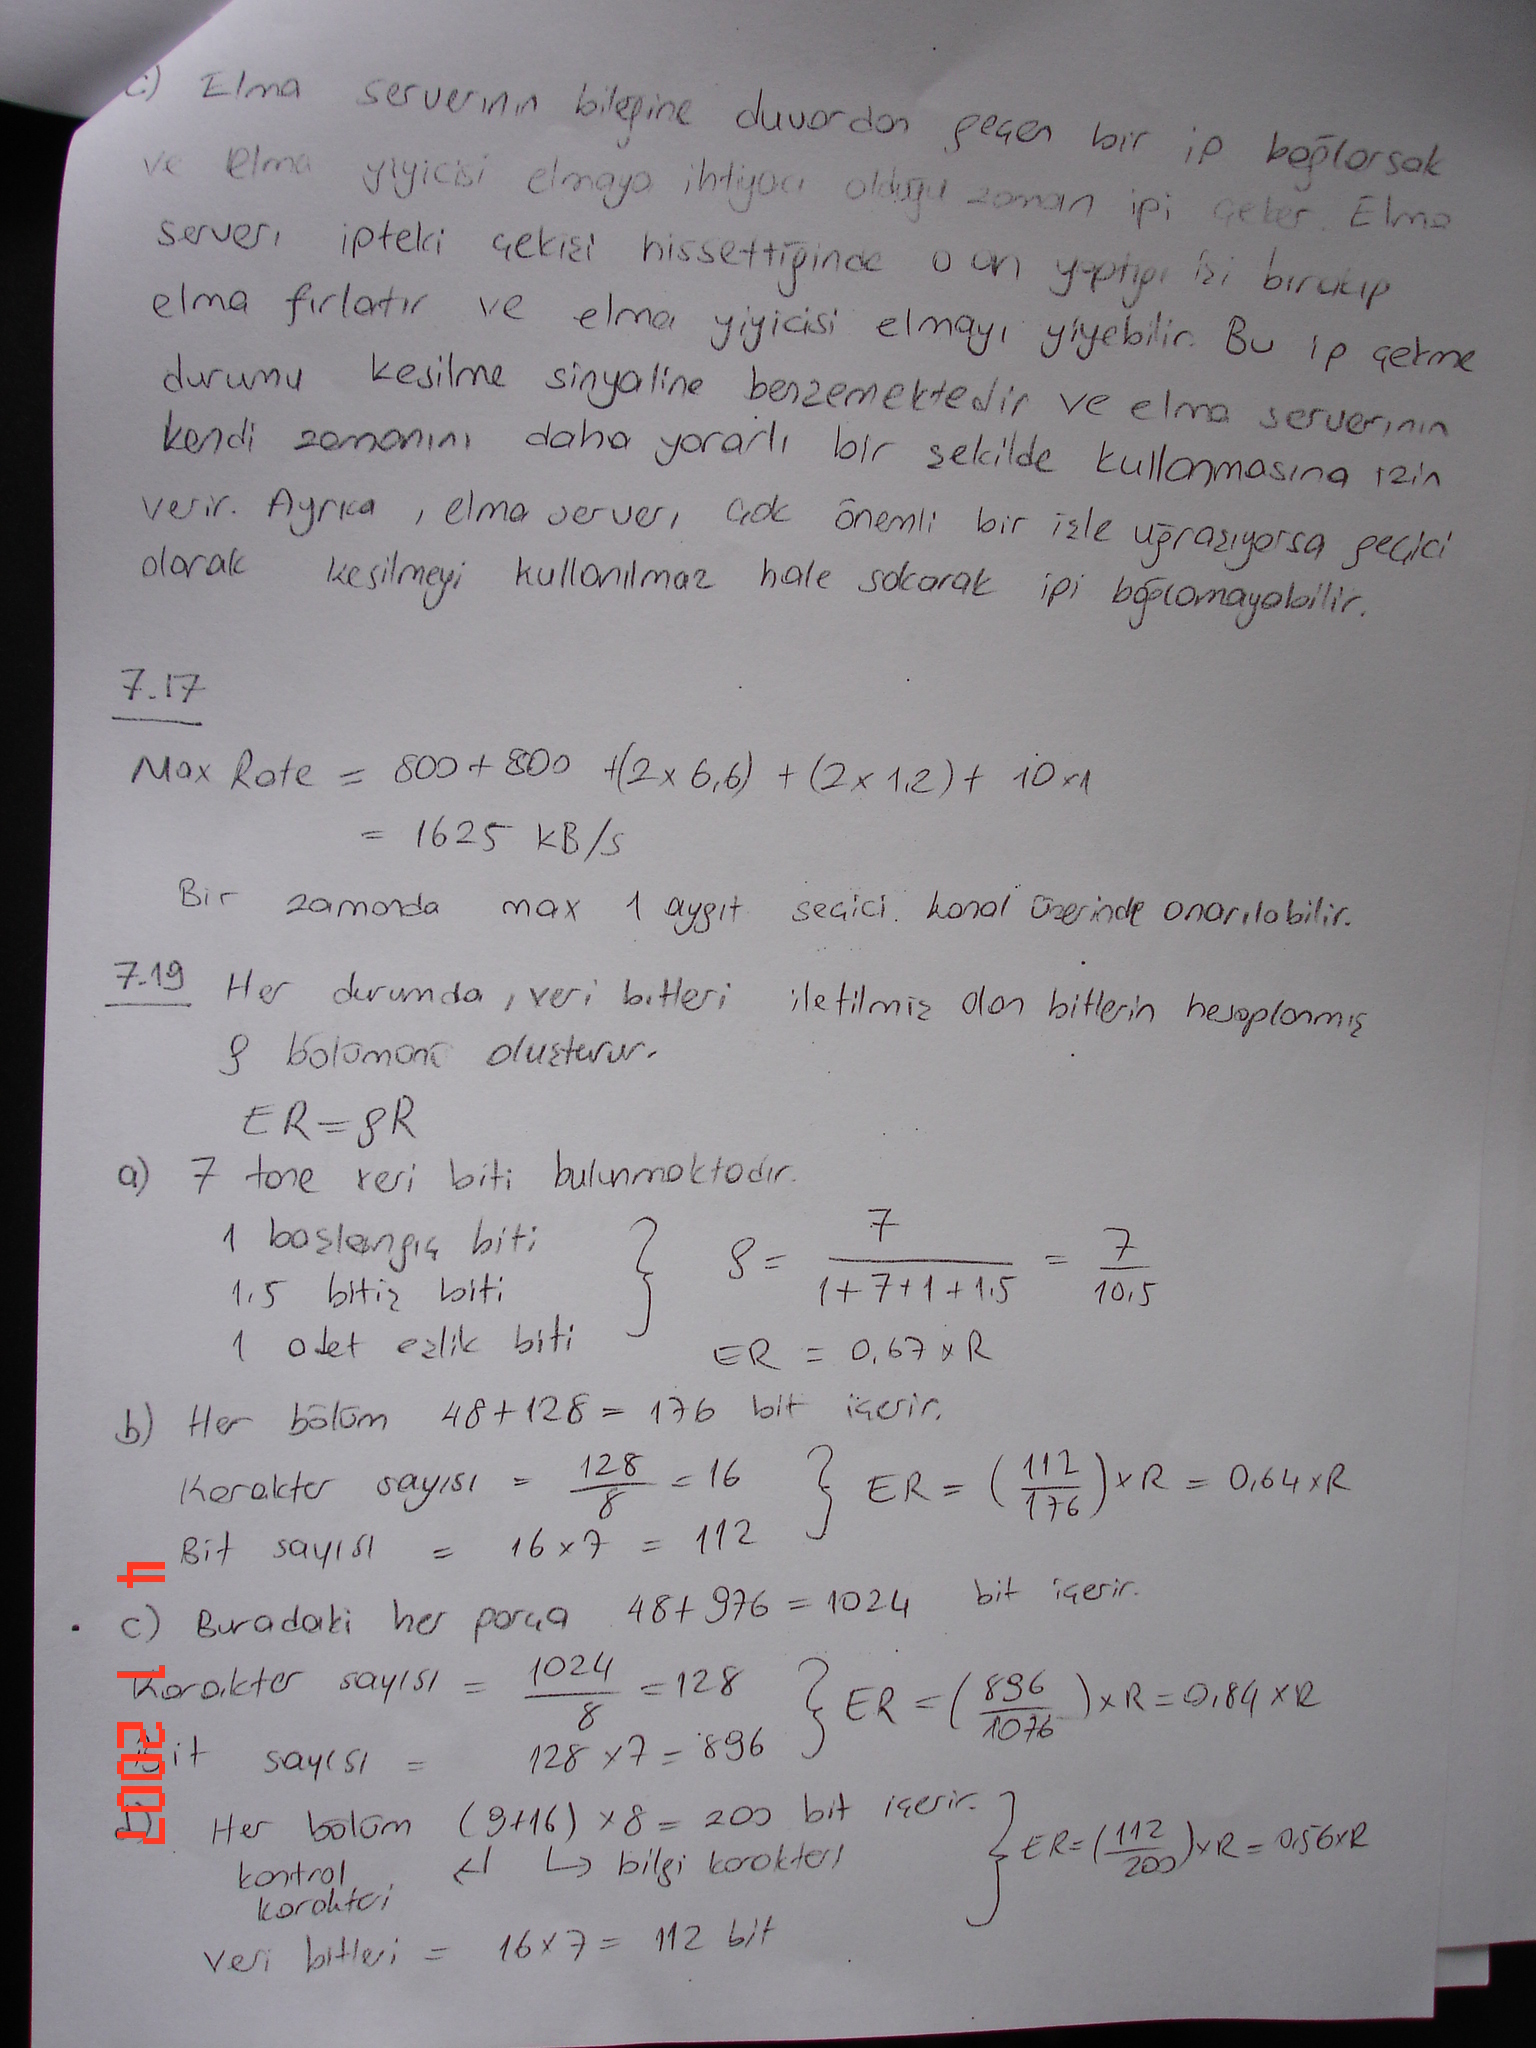 c) Elma serverının bileğine duvardan geçen bir ip bağlarsak
ve Elma yiyicisi elmaya ihtiyacı olduğu zaman ipi çeker. Elma
serverı ipteki çekişi hissettiğinde o an yaptığı işi bırakıp
elma fırlatır ve elma yiyicisi elmayı yiyebilir. Bu ip çekme
durumu kesilme sinyaline benzemektedir ve elma serverının
kendi zamanını daha yararlı bir şekilde kullanmasına izin
verir. Ayrıca, elma serverı çok önemli bir işle uğraşıyorsa geçici
olarak kesilmeyi kullanılmaz hale sokarak ipi bağlamayabilir.
7.17
Max Rate = 800 + 800 + (2 x 6,6) + (2 x 1,2) + 10 x 1
= 1625 kB/s
Bir zamanda max 1 aygıt seçici kanal üzerinde onarılabilir.
7.19 Her durumda, veri bitleri iletilmiş olan bitlerin hesaplanmış
ρ bölümünü oluşturur.
ER = ρR
a) 7 tane veri biti bulunmaktadır.
1 başlangıç biti
1,5 bitiş biti
1 adet eşlik biti
} ρ = 7 / (1 + 7 + 1 + 1,5) = 7 / 10,5
ER = 0,67 x R
b) Her bölüm 48 + 128 = 176 bit içerir.
Karakter sayısı = 128 / 8 = 16
Bit sayısı = 16 x 7 = 112
} ER = (112 / 176) x R = 0,64 x R
c) Buradaki her parça 48 + 976 = 1024 bit içerir.
Karakter sayısı = 1024 / 8 = 128
Bit sayısı = 128 x 7 = 896
} ER = (896 / 1076) x R = 0,84 x R
d) Her bölüm (9+16) x 8 = 200 bit içerir.
kontrol karakteri ↵ ↳ bilgi karakteri
veri bitleri = 16 x 7 = 112 bit
} ER = (112 / 200) x R = 0,56 x R
4 1 2007